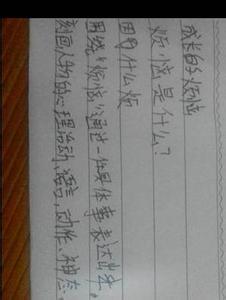 成长的烦恼
烦恼是什么?
因为什么烦
围绕“烦恼”通过一件具体事表达出来。
刻画人物的心理活动、语言、动作、神态、